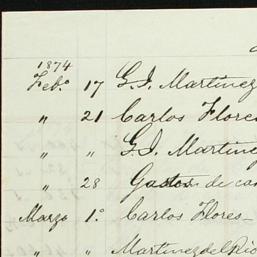 1874
Feb.° 17 G. I. Martinez
" 21 Carlos Flores
" " G. I. Martinez
" 28 Gastos de
Marzo 1.° Carlos Flores
" " Martinez del Rio